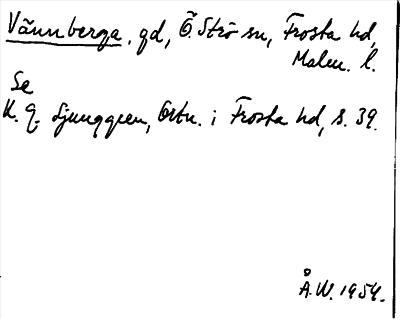 Vännberga, gd, Ö. Strö sn, Frosta hd,
Malm. l.
Se
K. G. Ljunggren, Ortn. i Frosta hd, s. 39.
Å. W. 1954.